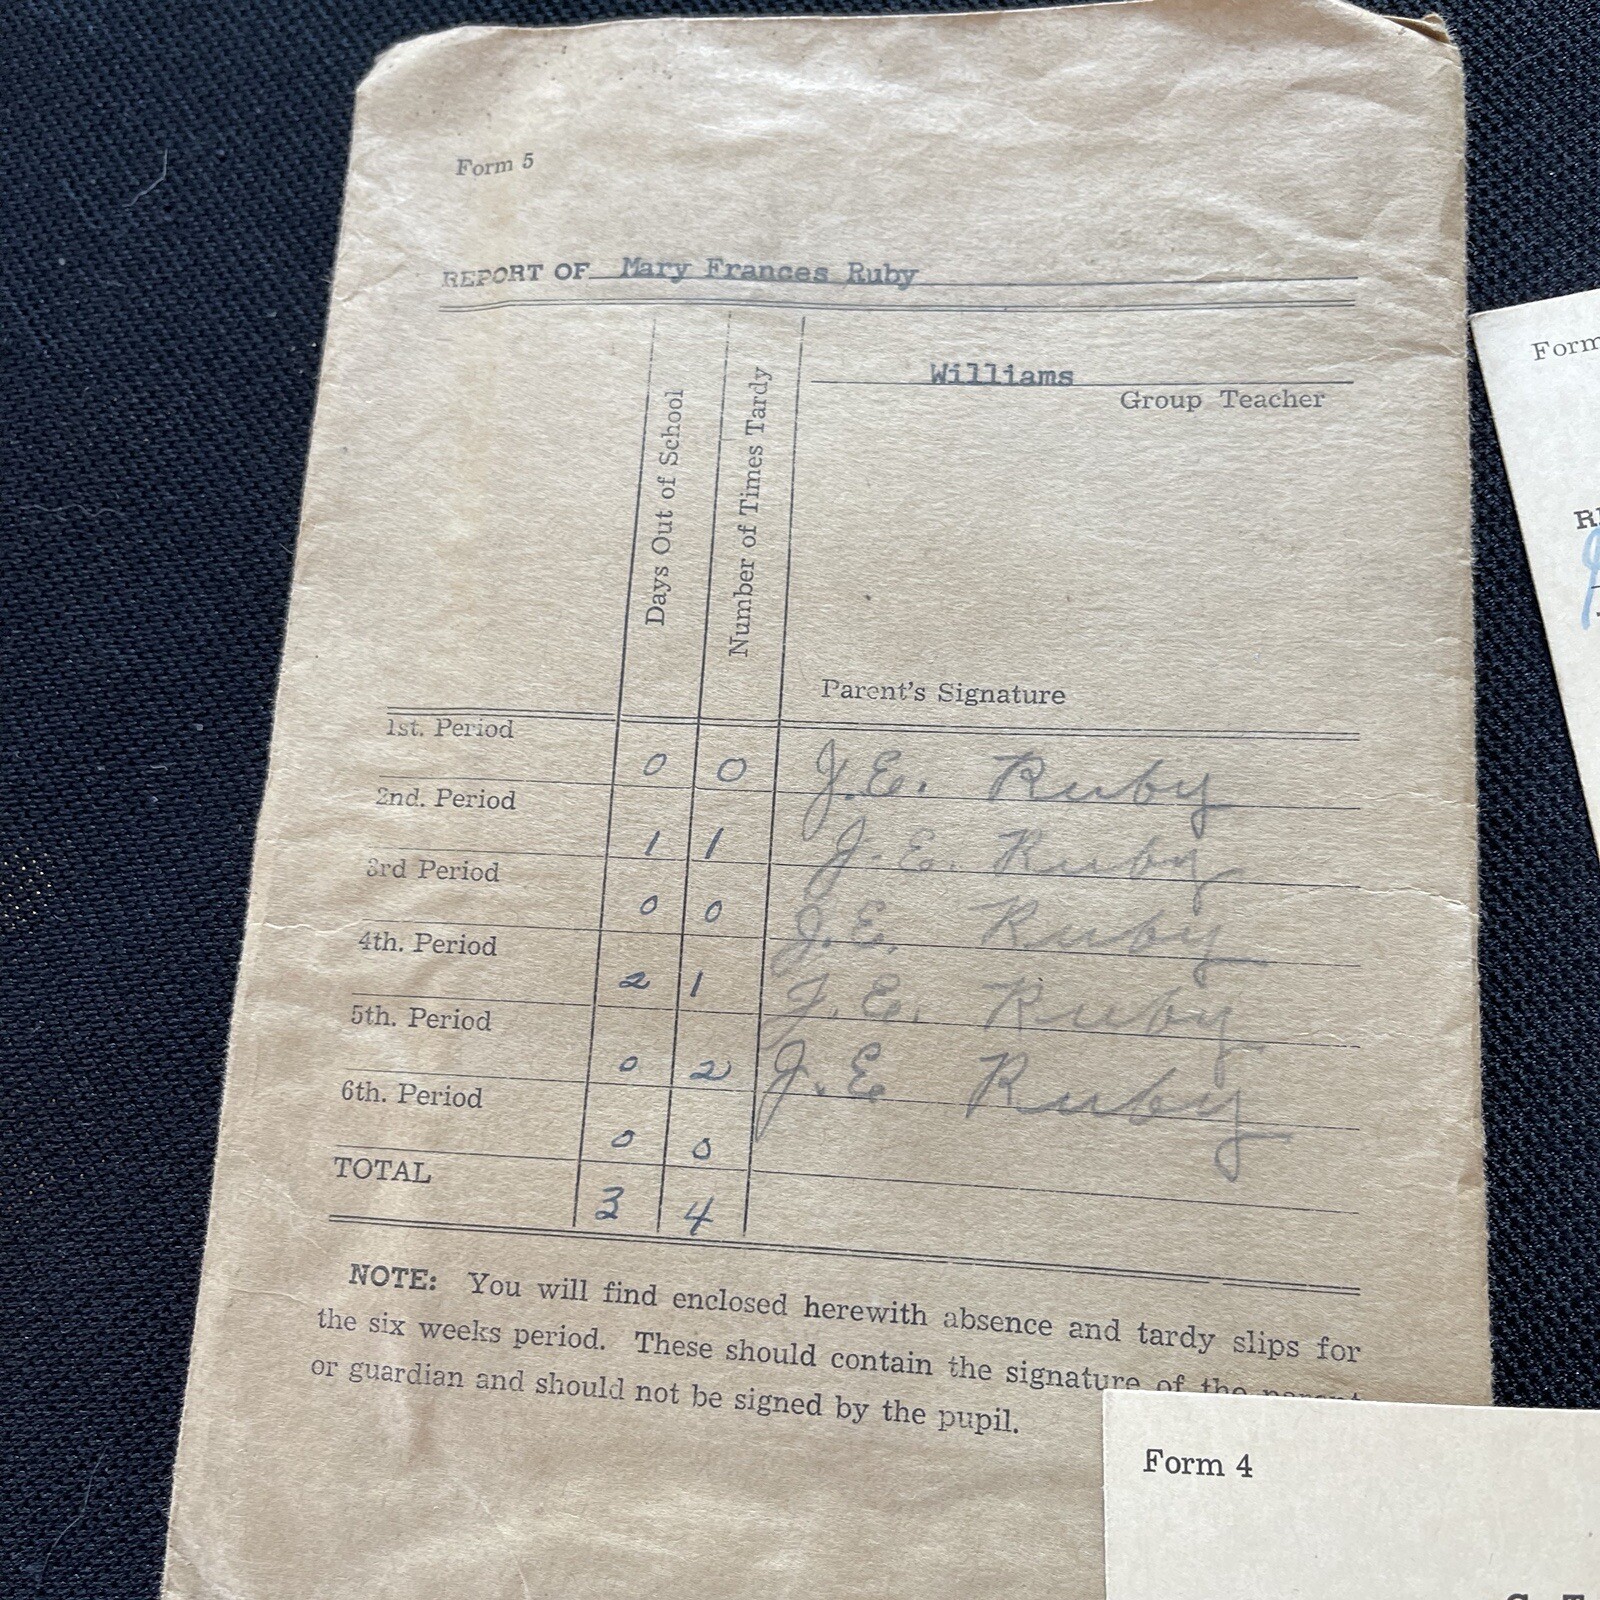 Form 5
REPORT OF Mary Frances Ruby
Williams
Group Teacher
Days Out of School
Number of Times Tardy
Parent's Signature
1st. Period 0 0 J.E. Ruby
2nd. Period 1 1 J.E. Ruby
3rd Period 0 0 J.E. Ruby
4th. Period 2 1 J.E. Ruby
5th. Period 0 2 J.E Ruby
6th. Period 0 0
TOTAL 3 4
NOTE: You will find enclosed herewith absence and tardy slips for
the six weeks period. These should contain the signature of the parent
or guardian and should not be signed by the pupil.
Form 4
Form